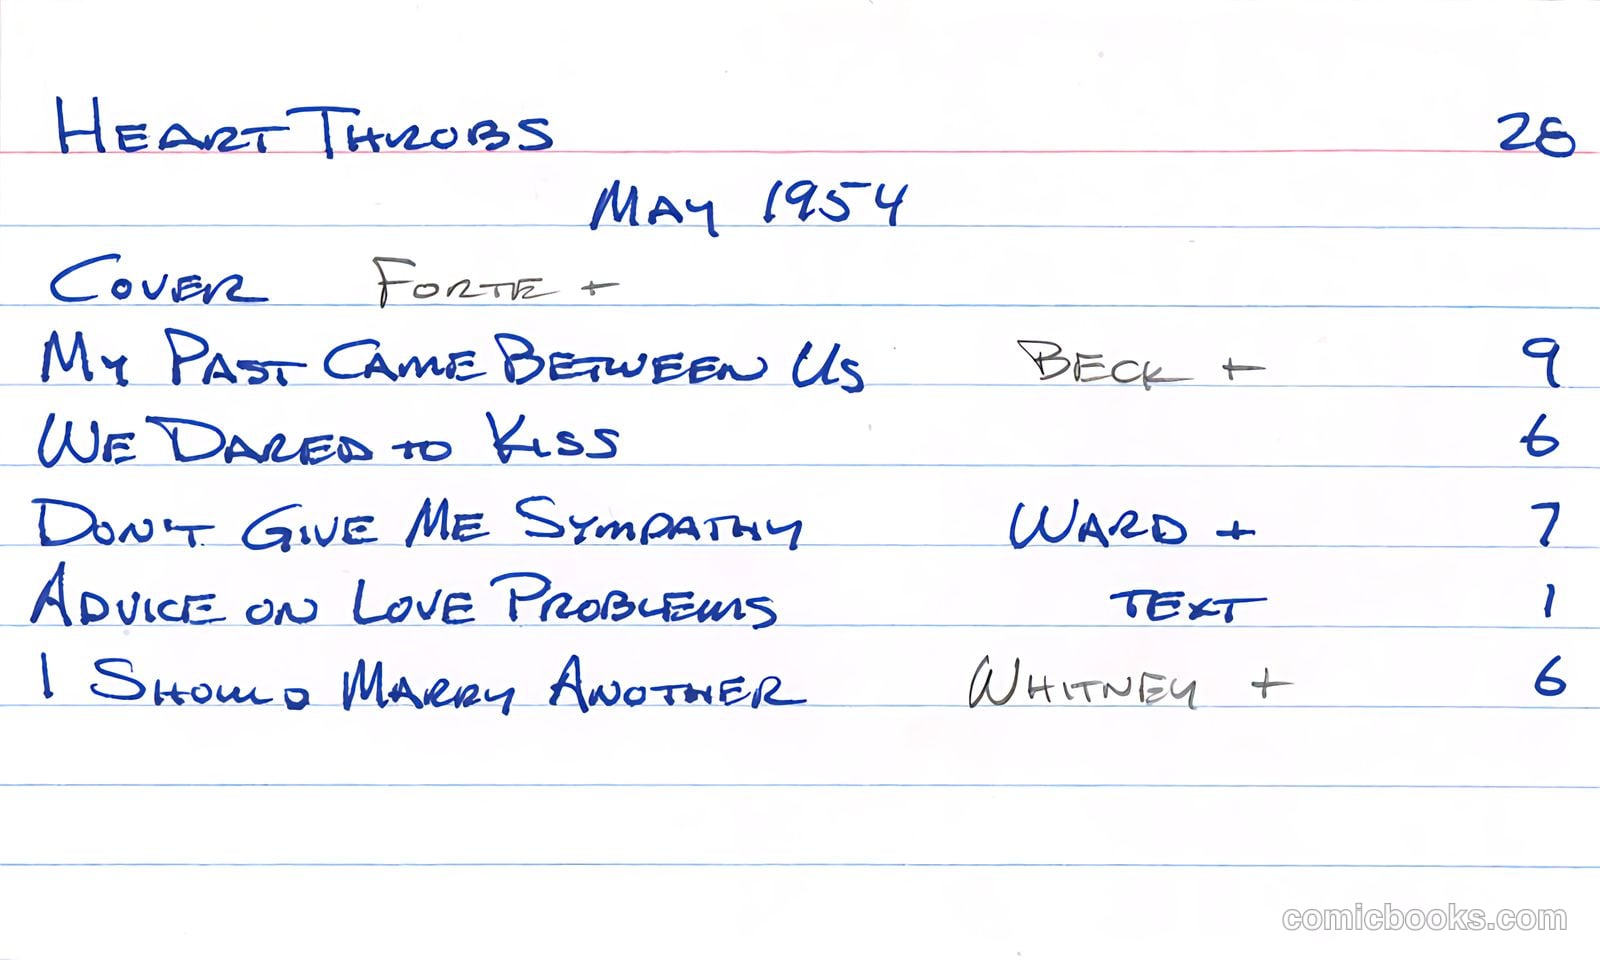 HEART THROBS 28
MAY 1954
COVER FORTE +
MY PAST CAME BETWEEN US BECK + 9
WE DARED TO KISS 6
DON'T GIVE ME SYMPATHY WARD + 7
ADVICE ON LOVE PROBLEMS TEXT 1
I SHOULD MARRY ANOTHER WHITNEY + 6
comicbooks.com